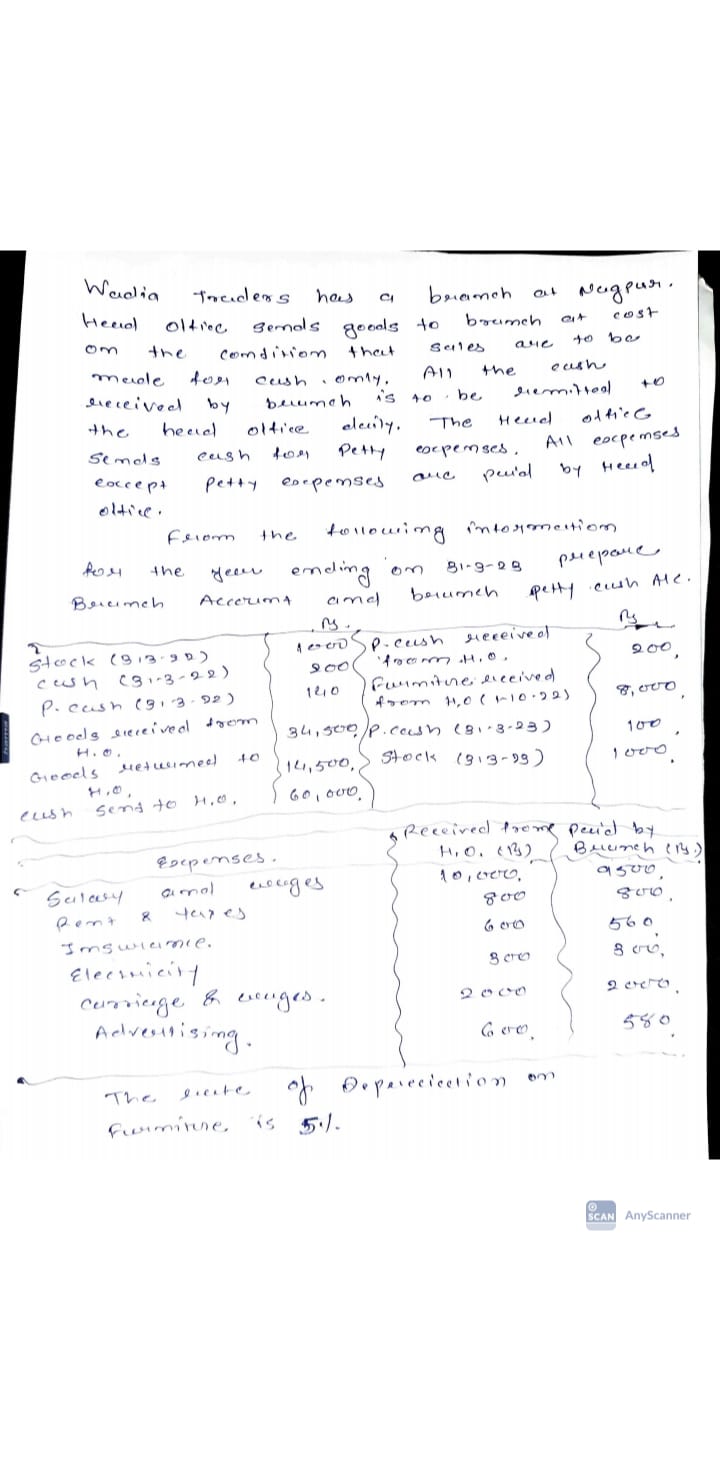 Wadia Traders has a branch at Nagpur.
Head office sends goods to branch at cost
on the condition that sales are to be
made for cash only. All the cash
received by branch is to be remitted to
the head office daily. The Head office
sends cash for Petty expenses. All expenses
except petty expenses are paid by Head
office.
From the following information
for the year ending on 31-3-23 prepare
Branch Account and branch petty cash A/c.
Rs. Rs
Stock (31.3.22) P. cash received from H.O. 200,
cash (31-3-22)
P. cash (31.3.22) 140 Furniture received from H.O (1-10-22) 8,000
Goods received from H.O. 34,500, P. cash (31-3-23) 100
Goods returned to H.O, 14,500, Stock (31.3-23) 1000,
cash send to H.O. 60,000,
Expenses. Received from H.O. (Rs) Paid by Branch (Rs.)
Salary and wages 10,000, 9500,
Rent & taxes 800 800,
Insurance. 600 560
Electricity 300 300,
Carriage & wages. 2000 2000,
Advertising. 600, 580
The rate of Depreciation on
furniture is 5%.
SCAN AnyScanner